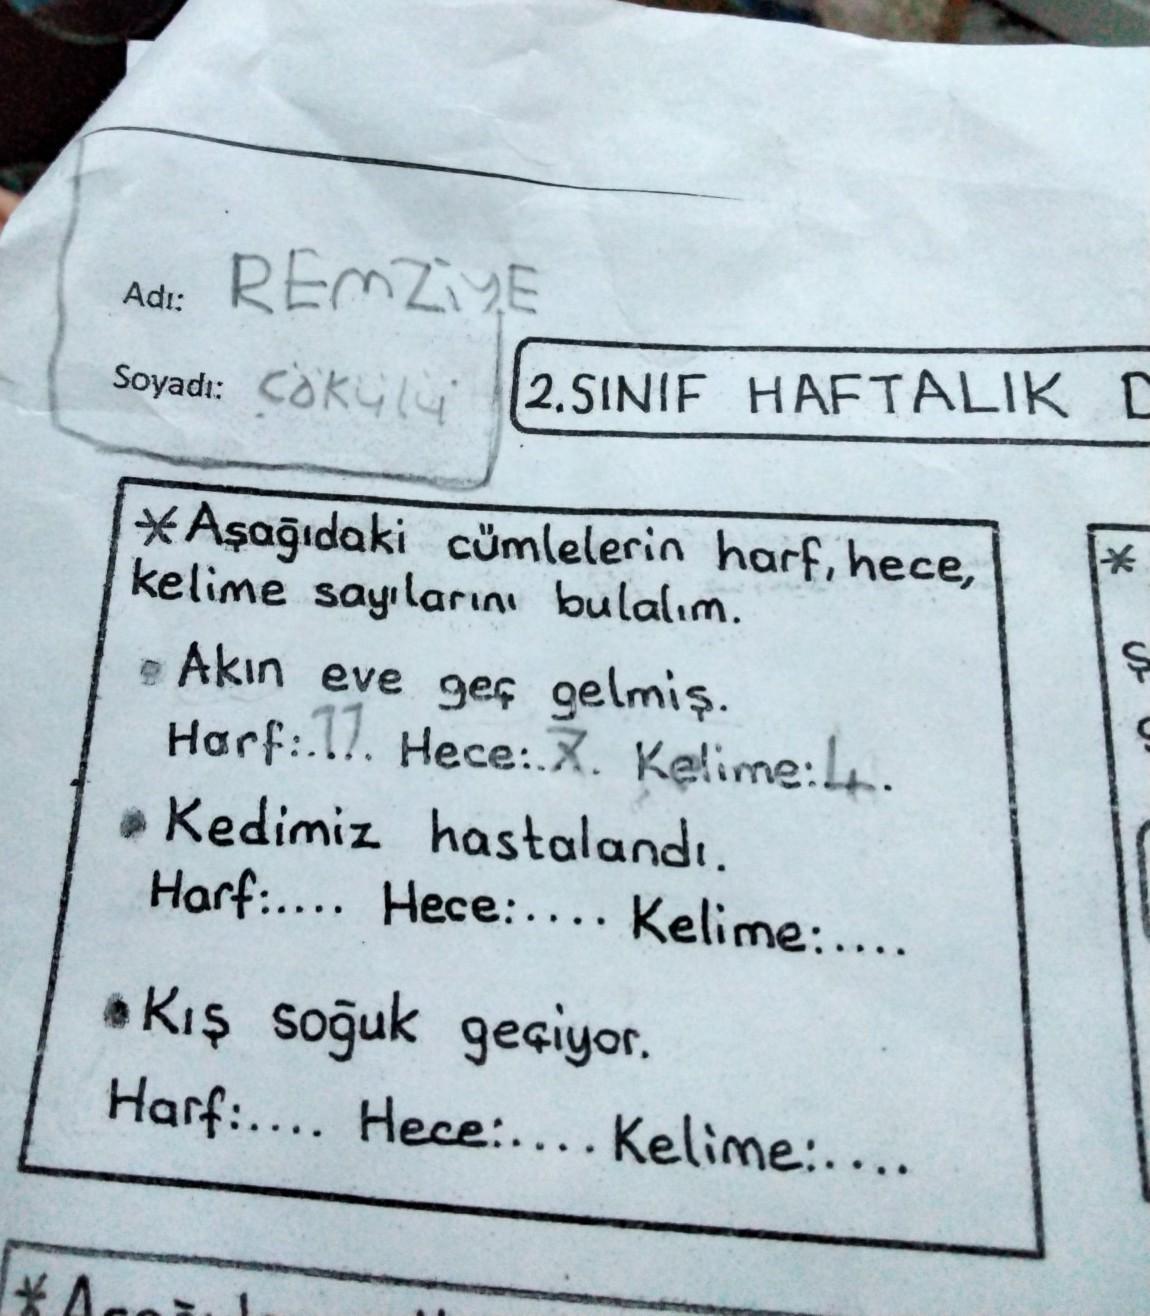 Adı: REMZİYE
Soyadı: ÇÖKÜLÜ
2.SINIF HAFTALIK
*Aşağıdaki cümlelerin harf, hece,
kelime sayılarını bulalım.
• Akın eve geç gelmiş.
Harf:.17. Hece:.7. Kelime:4.
• Kedimiz hastalandı.
Harf:.... Hece:.... Kelime:....
• Kış soğuk geçiyor.
Harf:.... Hece:.... Kelime:....